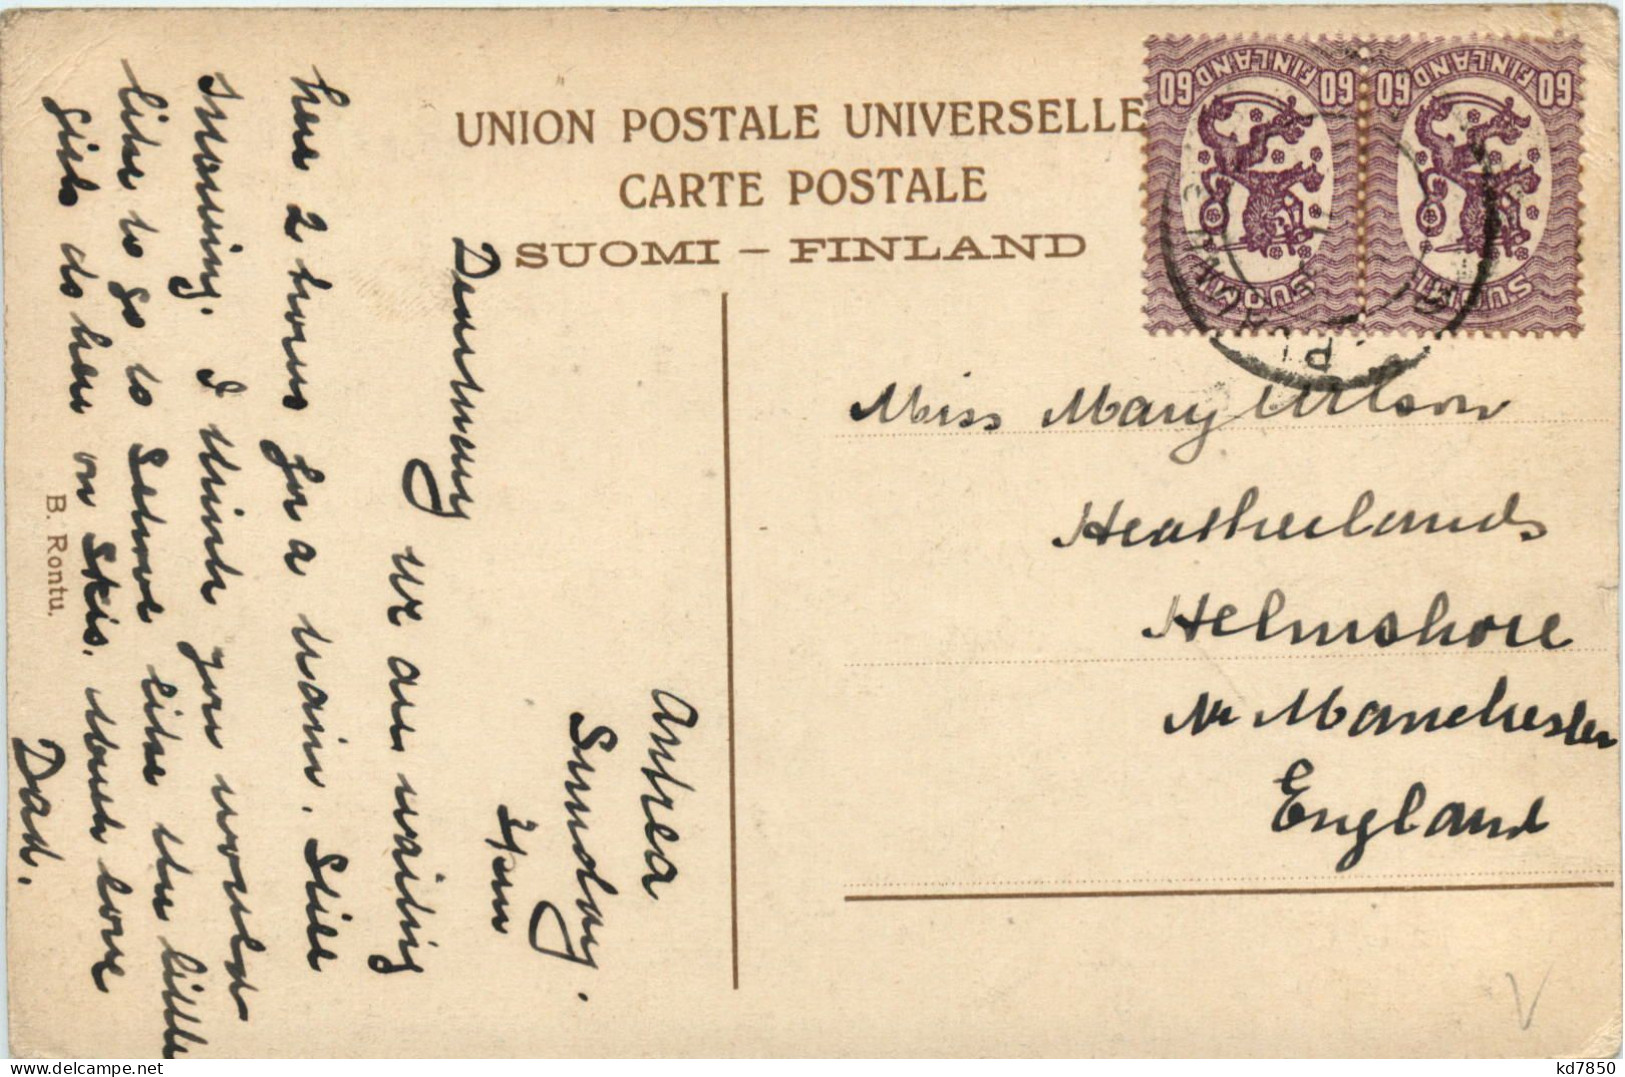 UNION POSTALE UNIVERSELLE
CARTE POSTALE
SUOMI – FINLAND
60 FINLAND 60
SUOMI
60 FINLAND 60
SUOMI
Antrea
Sunday.
2/pm
Dearmary
We are waiting
here 2 hours for a train. Still
Snowing. I think you would
like to go to School like the little
girls do here on Skis. Much love
Dad.
B. Rontu.
Miss Mary Wilson
Heatherlands
Helmshore
Nr Manchester
England
V
kd7850